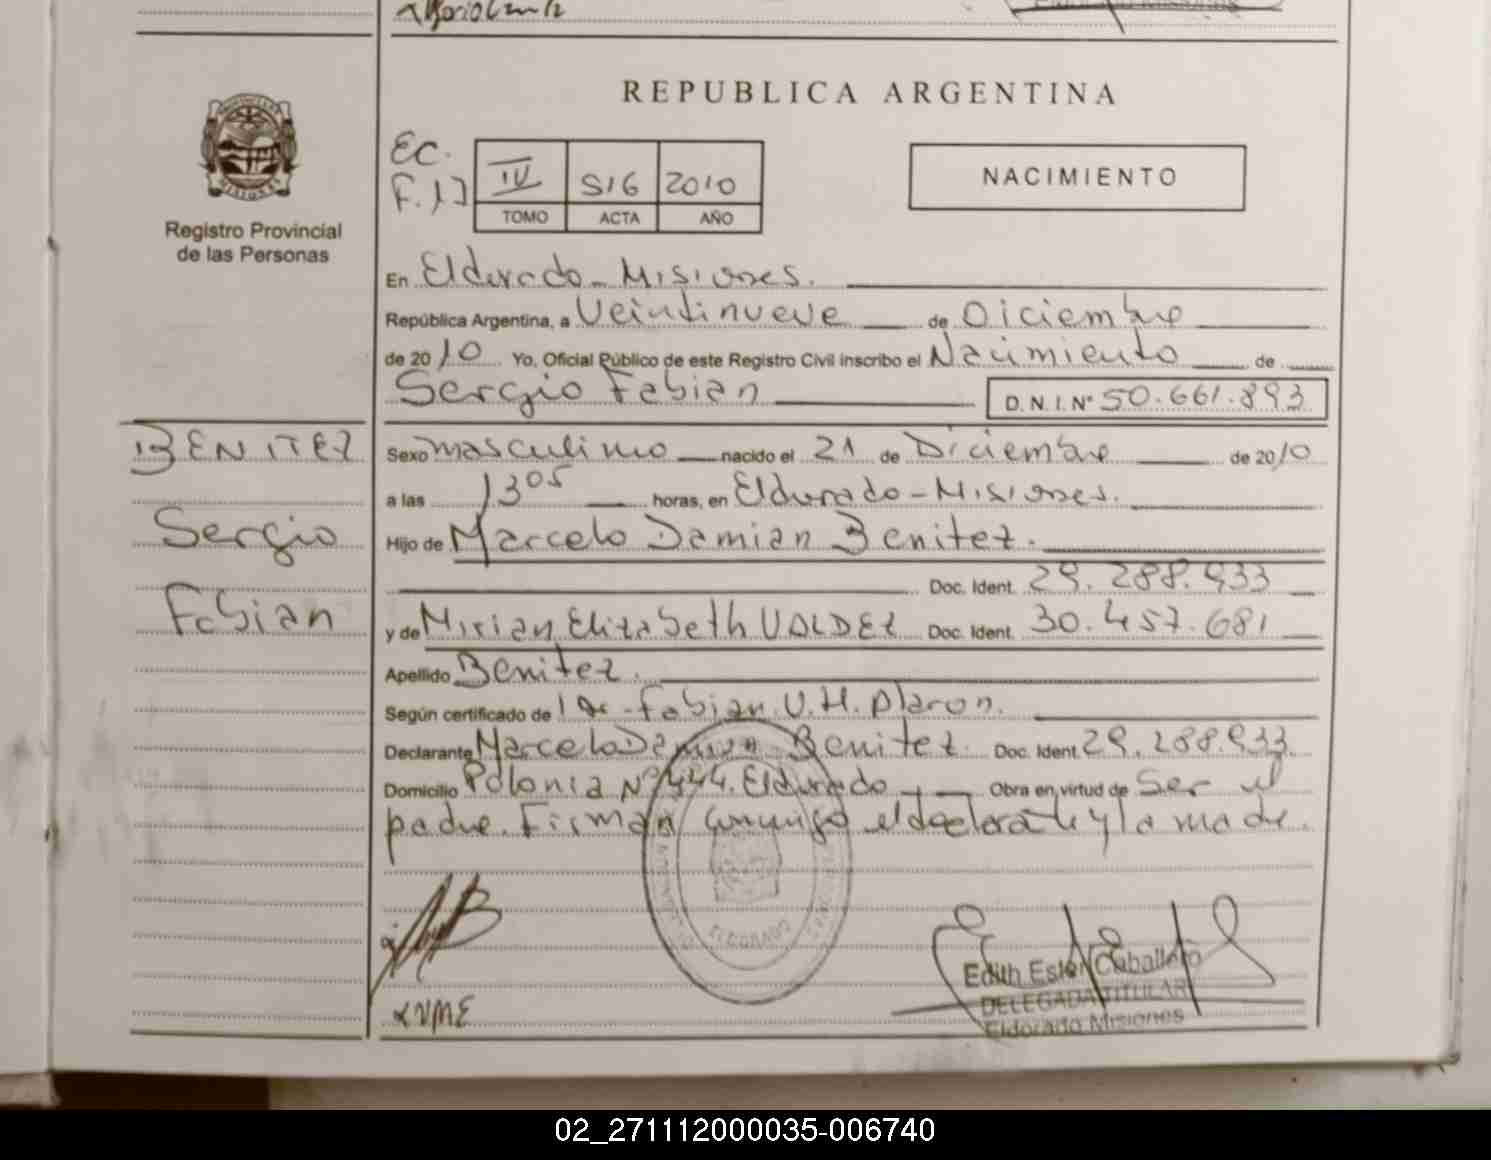 REPUBLICA ARGENTINA
Registro Provincial
de las Personas
EC.
F. 17
IV 516 2010
TOMO ACTA AÑO
NACIMIENTO
En Eldorado - Misiones.
República Argentina, a Veintinueve de Diciembre
de 2010 Yo, Oficial Público de este Registro Civil inscribo el Nacimiento de
Sergio Fabian D.N.I.Nº 50.661.893
BENITEZ
Sergio
Fabian
Sexo masculino nacido el 21 de Diciembre de 2010
a las 13 05 horas, en Eldorado - Misiones.
Hijo de Marcelo Damian Benitez.
Doc. Ident. 29.288.933
y de Mirian Elizabeth VALDEZ Doc. Ident. 30.457.681
Apellido Benitez.
Según certificado de Fabian V.H.
Declarante Marcelo Damian Benitez. Doc. Ident. 29.288.933.
Domicilio Polonia Nº 444. Eldorado Obra en virtud de Ser el
padre. Firman conmigo el declarante y la madre.
ELDORADO
Edith Ester Caballero
DELEGADA TITULAR
Eldorado Misiones
02_271112000035-006740